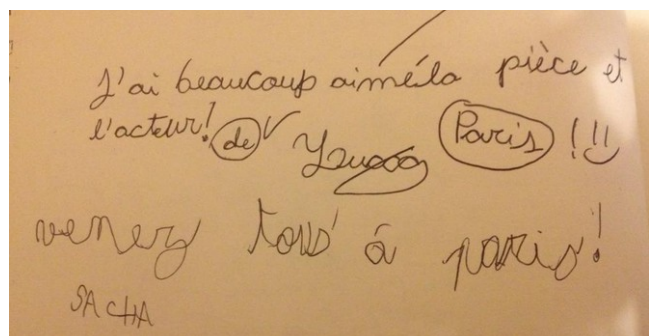 J'ai beaucoup aimé la pièce et
l'acteur! de Paris !!!
venez tous à paris!
SACHA